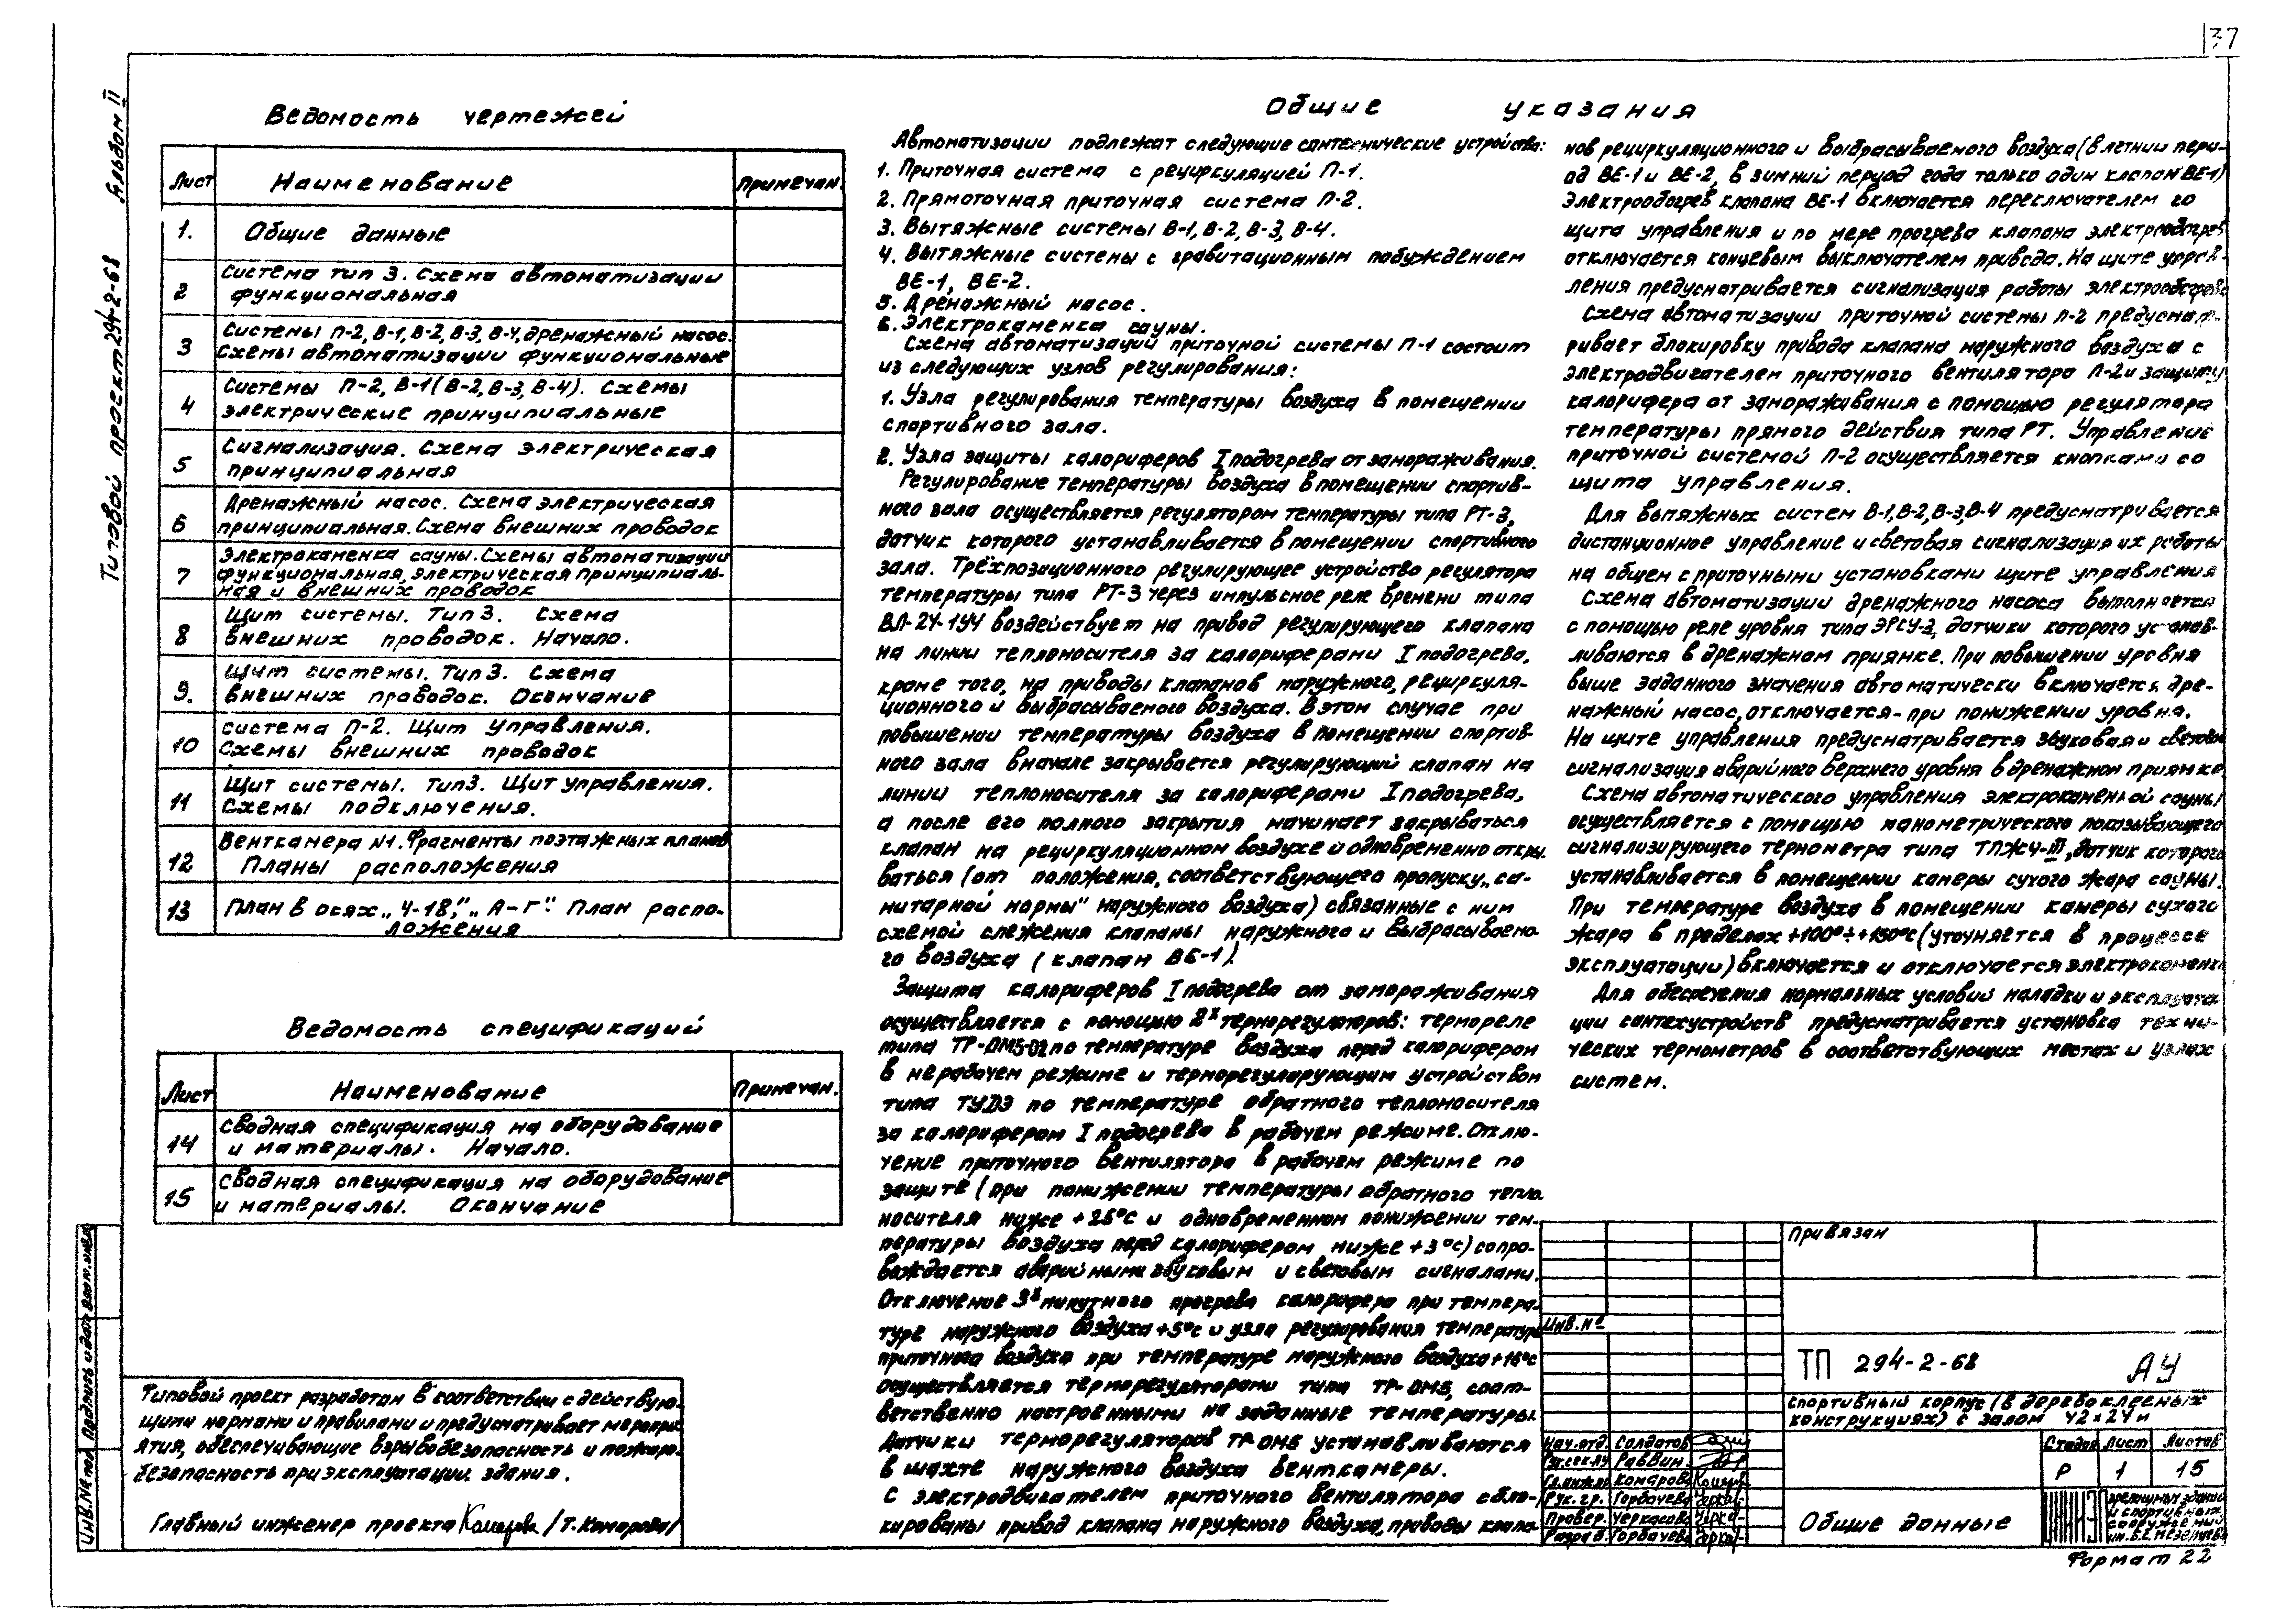 37
Типовой проект 294-2-68 Альбом II
Ведомость чертежей
Лист Наименование Примечан.
1. Общие данные
2 Система тип 3. Схема автоматизации
функциональная
3 Системы П-2, В-1, В-2, В-3, В-4, дренажный насос.
Схемы автоматизации функциональные
4 Системы П-2, В-1 (В-2, В-3, В-4). Схемы
электрические принципиальные
5 Сигнализация. Схема электрическая
принципиальная
6 Дренажный насос. Схема электрическая
принципиальная. Схема внешних проводок
7 Электрокаменка сауны. Схемы автоматизации
функциональная, электрическая принципиаль-
ная и внешних проводок
8 Щит системы. Тип 3. Схема
внешних проводок. Начало.
9. Щит системы. Тип 3. Схема
внешних проводок. Окончание
10 Система П-2. Щит управления.
Схемы внешних проводок
11 Щит системы. Тип 3. Щит управления.
Схемы подключения.
12 Венткамера №1. Фрагменты поэтажных планов
Планы расположения
13 План в осях „4-18", „А-Г". План распо-
ложения
Ведомость спецификаций
Лист Наименование Примечан.
14 Сводная спецификация на оборудование
и материалы. Начало.
15 Сводная спецификация на оборудование
и материалы. Окончание
Типовой проект разработан в соответствии с действую-
щими нормами и правилами и предусматривает меропри-
ятия, обеспечивающие взрывобезопасность и пожаро-
безопасность при эксплуатации здания.
Главный инженер проекта /Т. Комарова/
Инв. № подл. Подпись и дата Взам. инв. №
Общие указания
Автоматизации подлежат следующие сантехнические устройства:
1. Приточная система с рециркуляцией П-1.
2. Прямоточная приточная система П-2.
3. Вытяжные системы В-1, В-2, В-3, В-4.
4. Вытяжные системы с гравитационным побуждением
ВЕ-1, ВЕ-2.
5. Дренажный насос.
6. Электрокаменка сауны.
Схема автоматизации приточной системы П-1 состоит
из следующих узлов регулирования:
1. Узла регулирования температуры воздуха в помещении
спортивного зала.
2. Узла защиты калориферов I подогрева от замораживания.
Регулирование температуры воздуха в помещении спортив-
ного зала осуществляется регулятором температуры типа РТ-3,
датчик которого устанавливается в помещении спортивного
зала. Трёхпозиционного регулирующее устройство регулятора
температуры типа РТ-3 через импульсное реле времени типа
ВЛ-24-1У4 воздействует на привод регулирующего клапана
на линии теплоносителя за калориферами I подогрева,
кроме того, на приводы клапанов наружного, рециркуля-
ционного и выбрасываемого воздуха. В этом случае при
повышении температуры воздуха в помещении спортив-
ного зала вначале закрывается регулирующий клапан на
линии теплоносителя за калориферами I подогрева,
а после его полного закрытия начинает закрываться
клапан на рециркуляционном воздухе и одновременно откры-
ваться (от положения, соответствующего пропуску „са-
нитарной нормы" наружного воздуха) связанные с ним
схемой слежения клапаны наружного и выбрасываемо-
го воздуха (клапан ВЕ-1).
Защита калориферов I подогрева от замораживания
осуществляется с помощью 2х терморегуляторов: термореле
типа ТР-ОМ5-02 по температуре воздуха перед калорифером
в нерабочем режиме и терморегулирующим устройством
типа ТУДЭ по температуре обратного теплоносителя
за калорифером I подогрева в рабочем режиме. Отклю-
чение приточного вентилятора в рабочем режиме по
защите (при понижении температуры обратного тепло-
носителя ниже +25°С и одновременном понижении тем-
пературы воздуха перед калорифером ниже +3°С) сопро-
вождается аварийными звуковым и световым сигналами.
Отключение 3х минутного прогрева калорифера при темпера-
туре наружного воздуха +5°С и узла регулирования температуры
приточного воздуха при температуре наружного воздуха +16°С
осуществляется терморегуляторами типа ТР-ОМ5, соот-
ветственно настроенными на заданные температуры.
Датчики терморегуляторов ТР-ОМ5 устанавливаются
в шахте наружного воздуха венткамеры.
С электродвигателем приточного вентилятора сбло-
кированы привод клапана наружного воздуха, приводы клапа-
нов рециркуляционного и выбрасываемого воздуха (в летний пери-
од ВЕ-1 и ВЕ-2, в зимний период года только один клапан ВЕ-1)
Электрообогрев клапана ВЕ-1 включается переключателем со
щита управления и по мере прогрева клапана электрообогрев
отключается концевым выключателем привода. На щите управ-
ления предусматривается сигнализация работы электрообогрева
Схема автоматизации приточной системы П-2 предусмат-
ривает блокировку привода клапана наружного воздуха с
электродвигателем приточного вентилятора П-2 и защиту
калорифера от замораживания с помощью регулятора
температуры прямого действия типа РТ. Управление
приточной системой П-2 осуществляется кнопками со
щита управления.
Для вытяжных систем В-1, В-2, В-3, В-4 предусматривается
дистанционное управление и световая сигнализация их работы
на общем с приточными установками щите управления
Схема автоматизации дренажного насоса выполняется
с помощью реле уровня типа ЭРСУ-3, датчики которого устанав-
ливаются в дренажном приямке. При повышении уровня
выше заданного значения автоматически включается дре-
нажный насос, отключается - при понижении уровня.
На щите управления предусматривается звуковая и световая
сигнализация аварийного верхнего уровня в дренажном приямке.
Схема автоматического управления электрокаменкой сауны
осуществляется с помощью манометрического показывающего
сигнализирующего термометра типа ТПЖ4-III, датчик которого
устанавливается в помещении камеры сухого жара сауны.
При температуре воздуха в помещении камеры сухого
жара в пределах +100°÷+150°С (уточняется в процессе
эксплуатации) включается и отключается электрокаменка
Для обеспечения нормальных условий наладки и эксплуата-
ции сантехустройств предусматривается установка техни-
ческих термометров в соответствующих местах и узлах
систем.
Привязан
Инв. №
ТП 294-2-68 АУ
Спортивный корпус (в деревоклееных
конструкциях) с залом 42×24 м
Нач. отд. Солдатов
Рук. сек. Раввин
Гл. инж. пр. Комарова
Рук. гр. Горбачева
Провер. Черкасова
Разраб. Горбачева
Стадия Лист Листов
Р 1 15
Общие данные
зрелищных зданий
и спортивных
сооружений
им. Б.С. Мезенцева
Формат 22